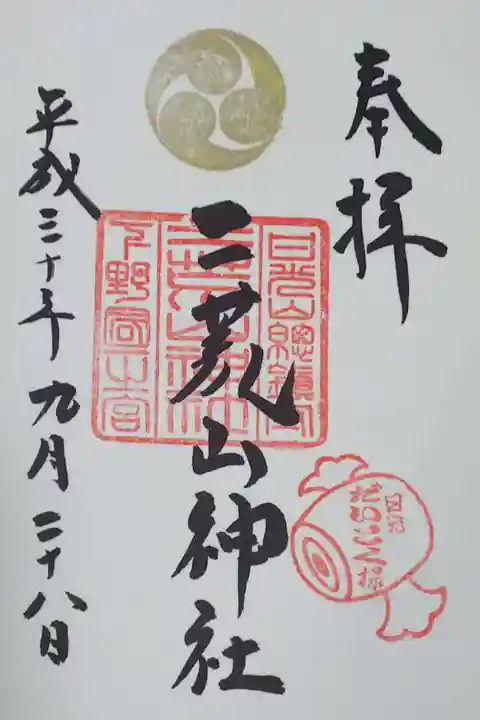 奉拝
日光山總鎮守
二荒山神社
下野國一之宮
二荒山神社
日光
だいこく様
平成三十年九月二十八日